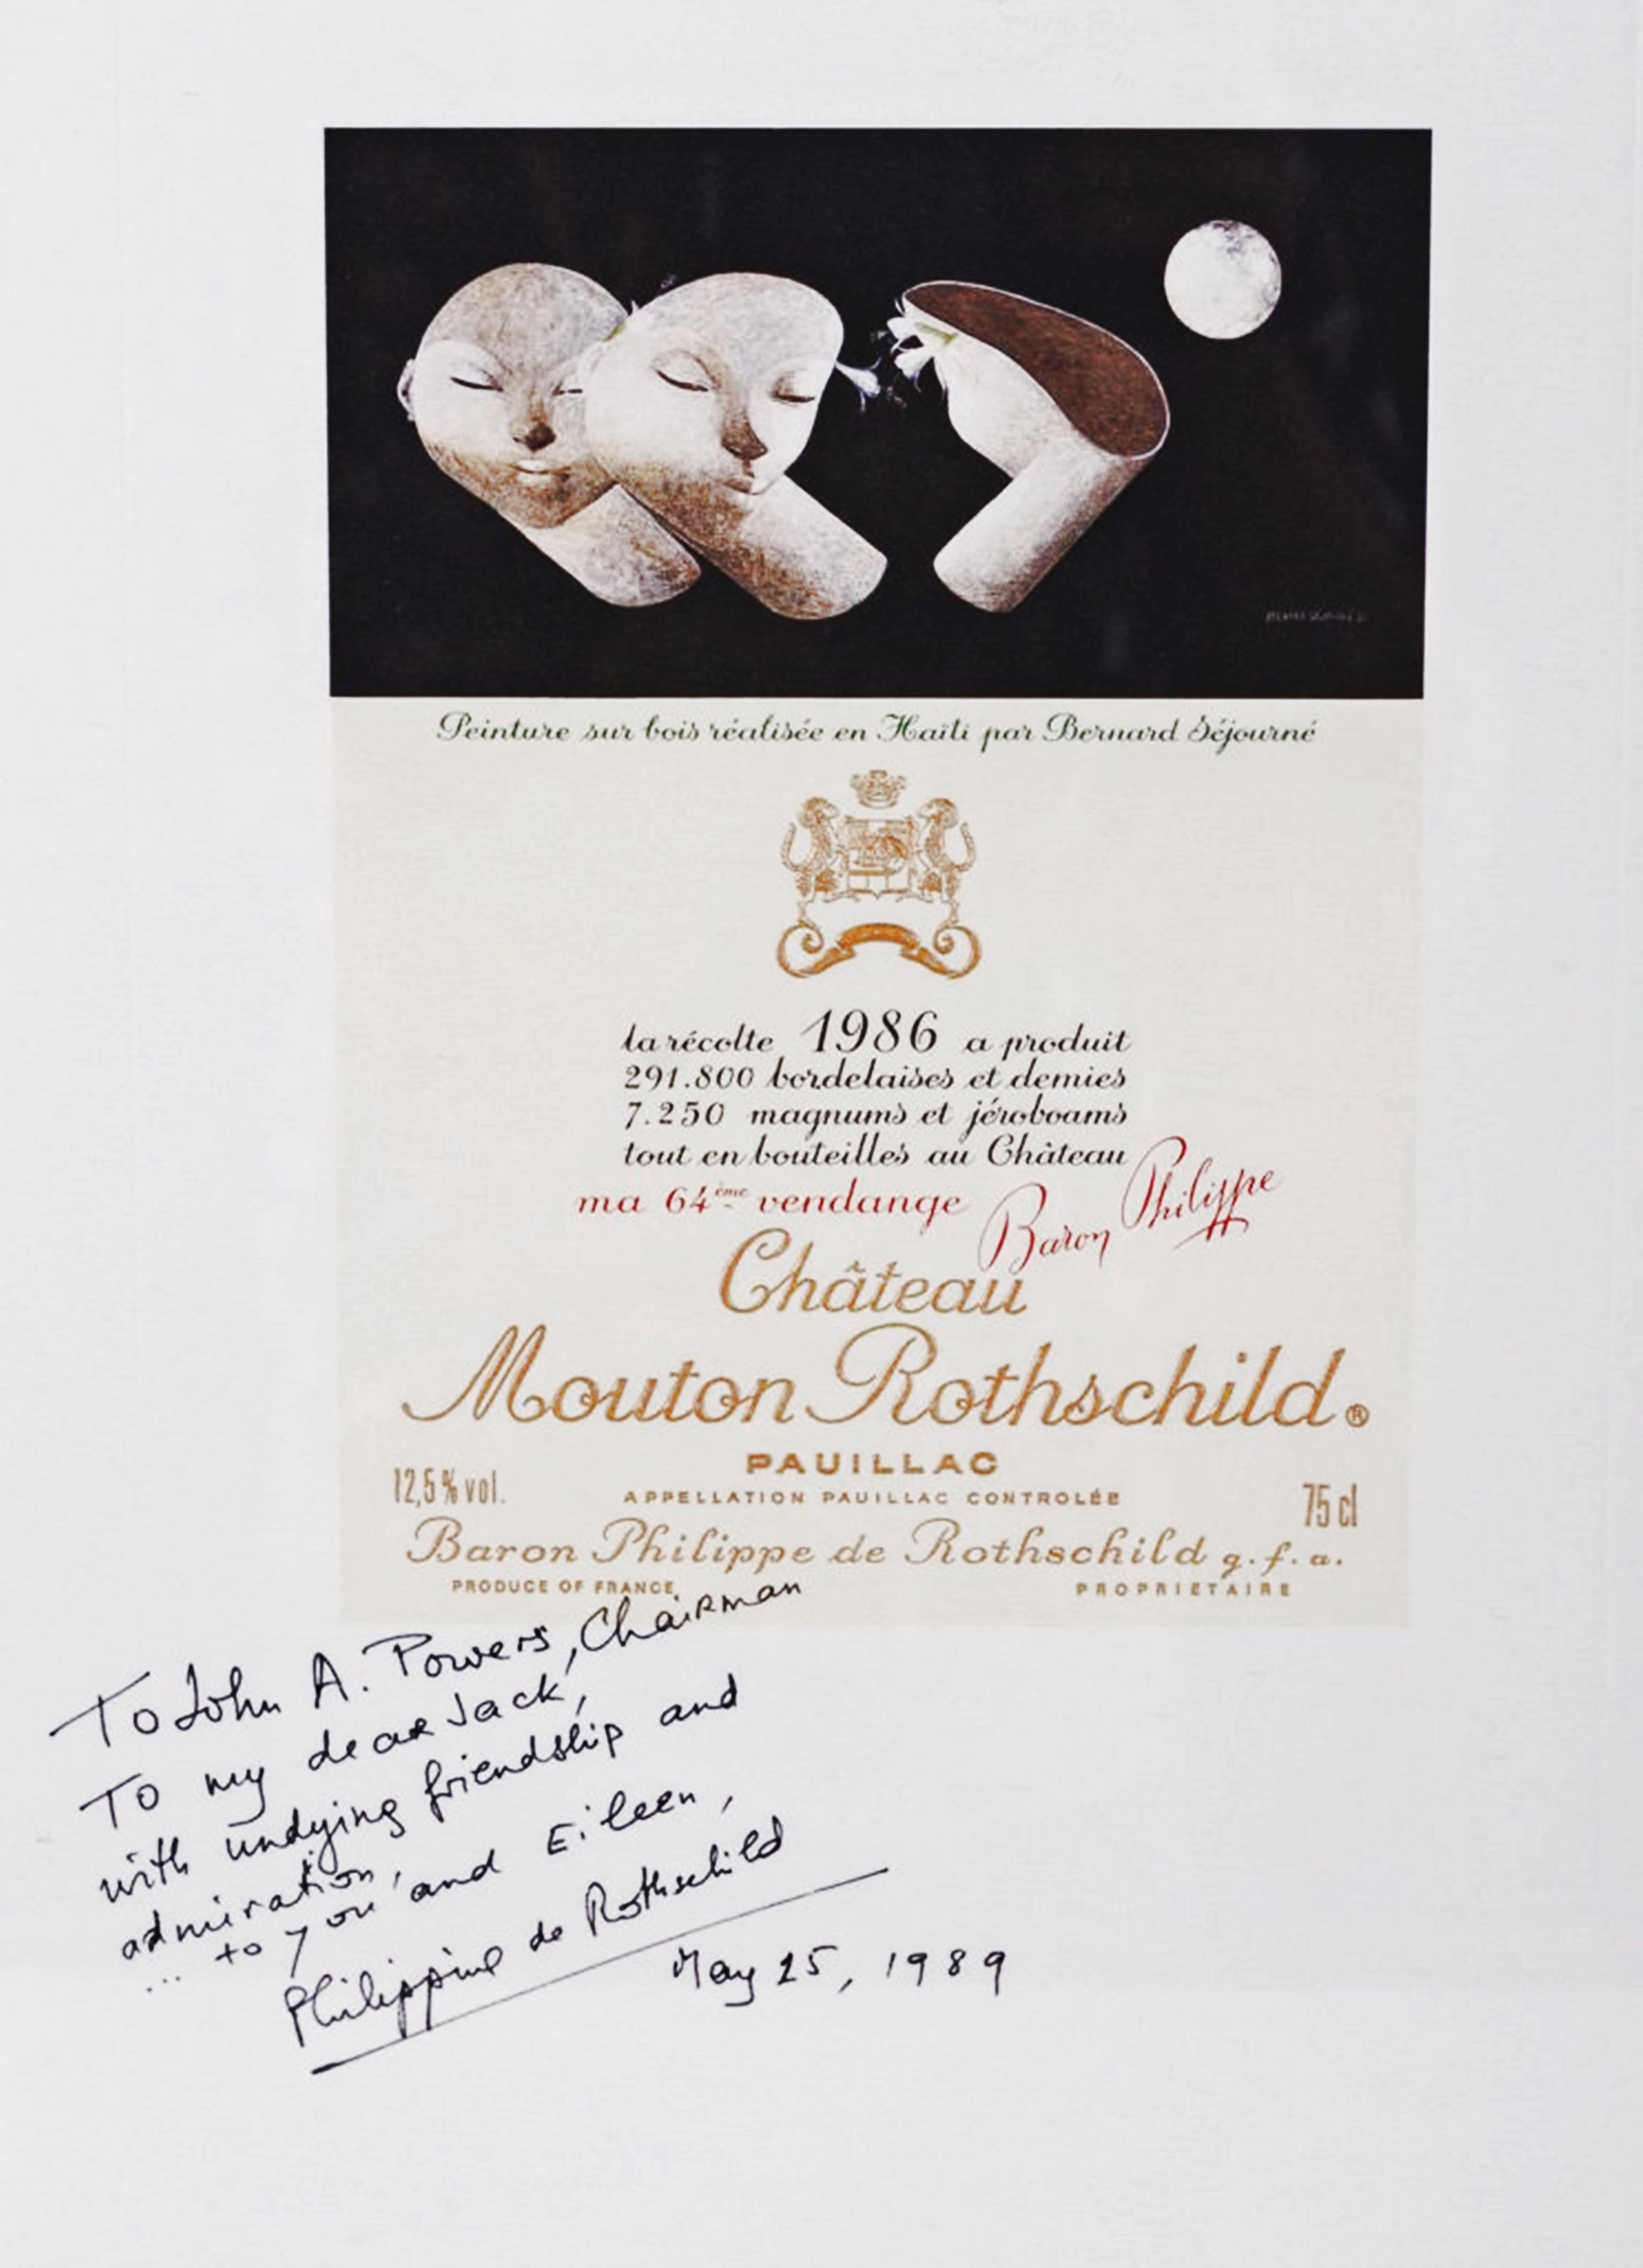 Peinture sur bois réalisée en Haïti par Bernard Séjourné
la récolte 1986 a produit
291.800 bordelaises et demies
7.250 magnums et jéroboams
tout en bouteilles au Château
ma 64ème vendange Baron Philippe
Château
Mouton Rothschild®
PAUILLAC
12,5% vol. APPELLATION PAUILLAC CONTROLÉE 75 cl
Baron Philippe de Rothschild g.f.a.
PRODUCE OF FRANCE PROPRIETAIRE
To John A. Powers, Chairman
To my dear Jack,
with undying friendship and
admiration,
... to you and Eileen,
Philippine de Rothschild
May 25, 1989